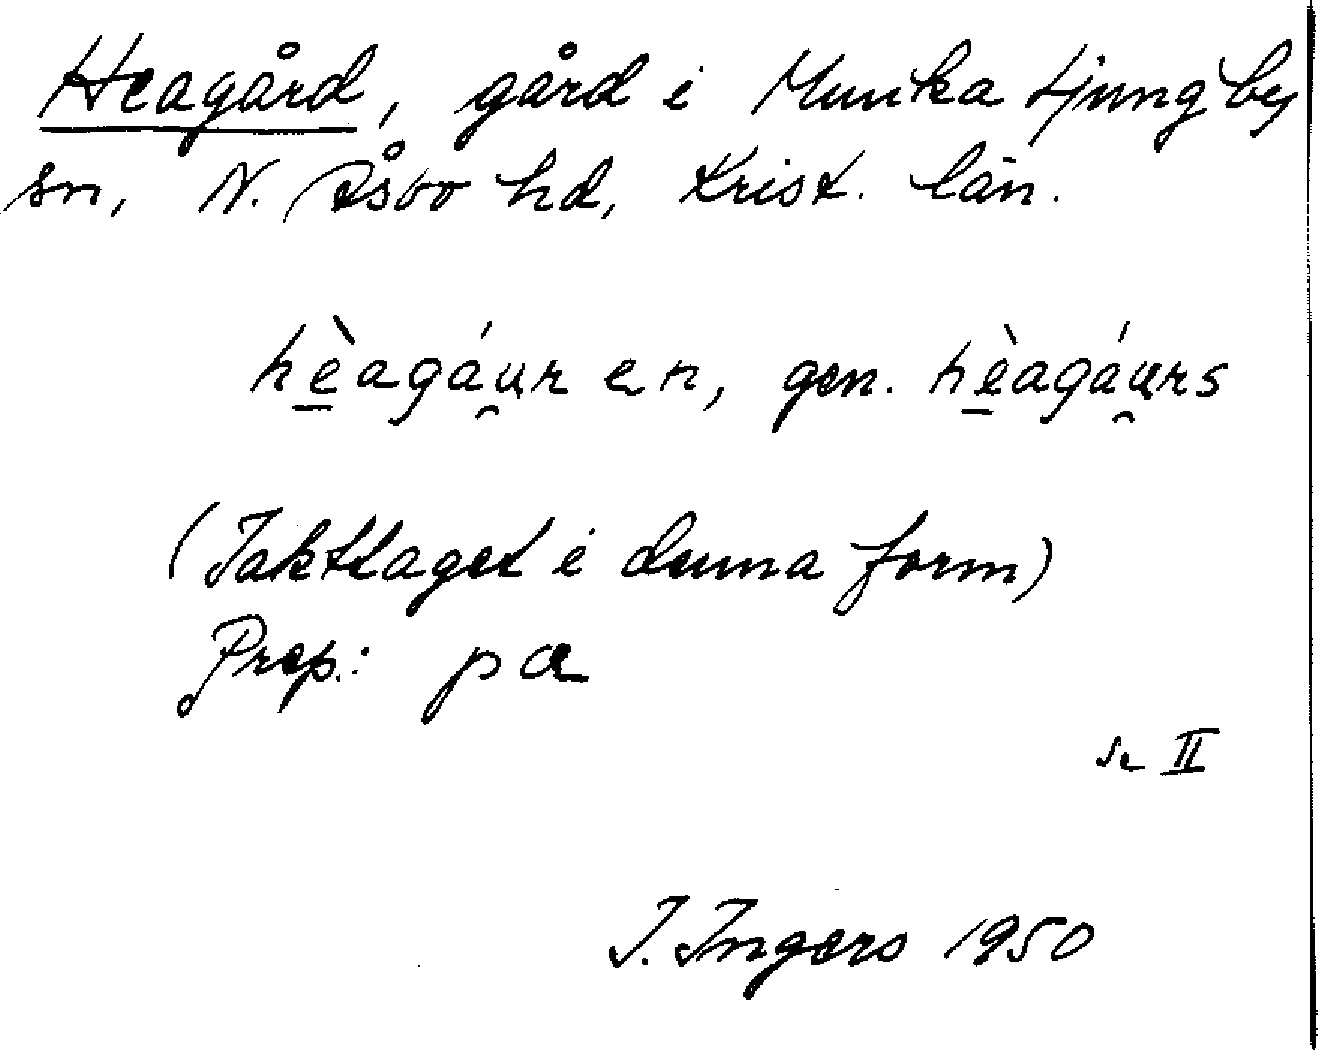 Heagård, gård i Munka Ljungby
sn, N. Åsbo hd, Krist. län.
hè̱agáu̯r en, gen. hè̱agáu̯rs
(Iakttaget i denna form)
Prep.: pa
se II
I. Ingers 1950